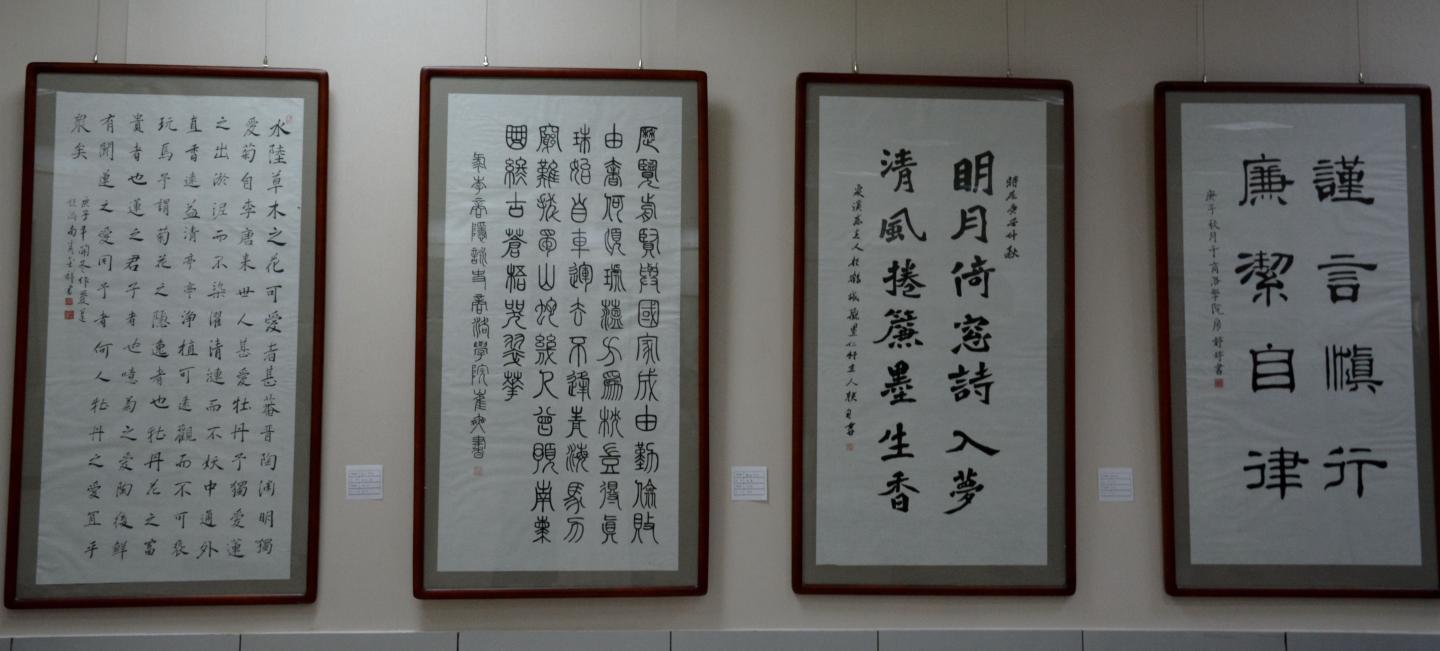 水陸草木之花可愛者甚蕃晉陶淵明獨
愛菊自李唐來世人甚愛牡丹予獨愛蓮
之出淤泥而不染濯清漣而不妖中通外
直香遠益清亭亭淨植可遠觀而不可褻
玩焉予謂菊花之隱逸者也牡丹花之富
貴者也蓮之君子者也噫菊之愛陶後鮮
有聞蓮之愛同予者何人牡丹之愛宜乎
眾矣
庚子年開冬作愛蓮
歷覽前賢與國家成由勤儉敗
由奢何須琥珀方為枕豈得真
珠始是車運去不逢青海馬力
窮難拔蜀山蛇幾人曾預南薰
曲終古蒼梧哭翠華
李商隱詠史商洛學院崔書
時在庚子仲秋
明月倚窓詩入夢
清風捲簾墨生香
謹言慎行
廉潔自律
庚子秋月于商洛學院房靜婷書